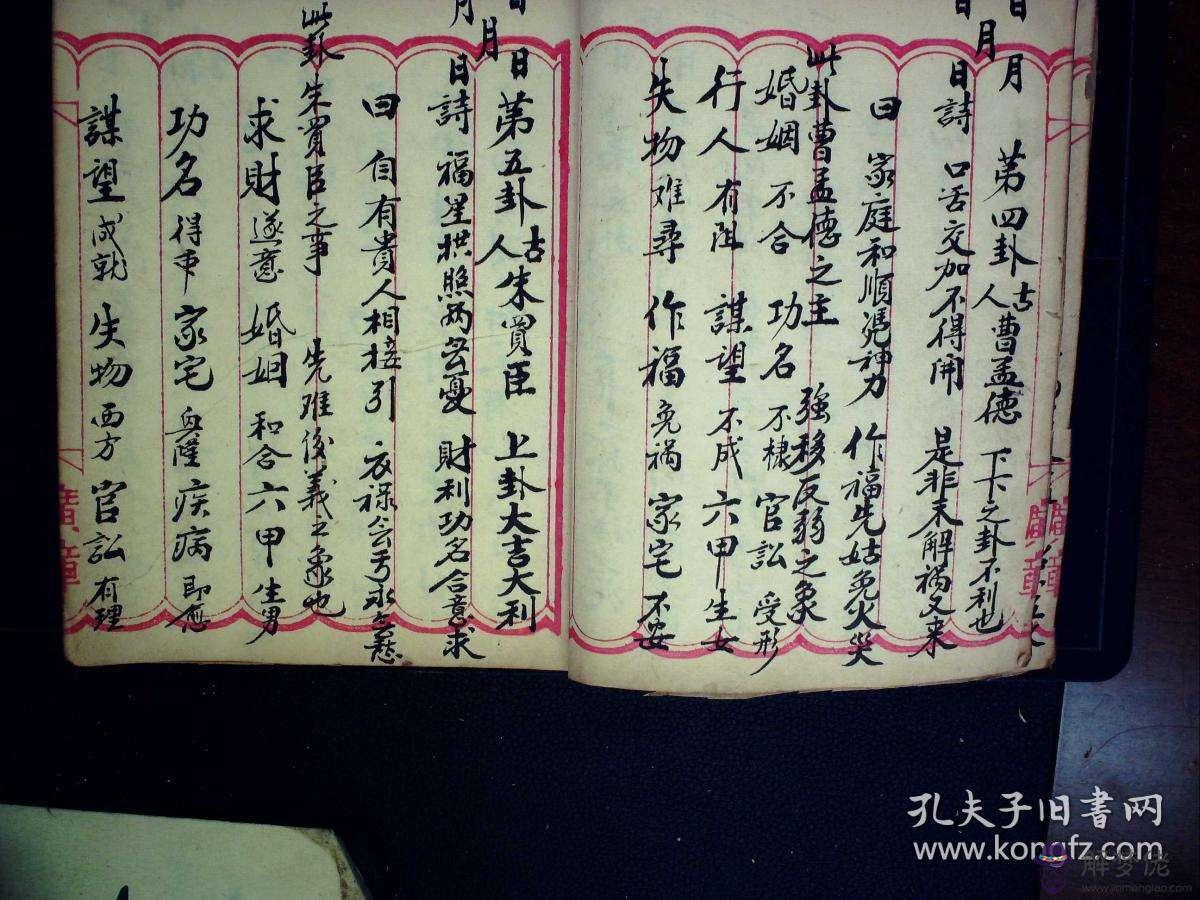 月 第四卦 古人 曹孟德 下下之卦不利也
日月
日詩 口舌交加不得開 是非未解禍又来
曰 家庭和順憑神力 作福先姑免火災
此卦曹孟德之主 強移反弱之象
婚姻 不合 功名 不棣 官訟 受形
行人有阻 謀望 不成 六甲 生女
失物难尋 作福 免禍 家宅 不安
日月
日 第五卦 古人 朱買臣 上卦大吉大利
月
日詩 福星拱照病無憂 財利功名合意求
曰 自有貴人相接引 衣禄
此 朱買臣之事 先难後義之象也
求財 遂意 婚姻 和合 六甲 生男
功名 得中 家宅 疾病 即應
謀望 成就 失物 西方 官訟 有理
廣章
廣章
孔夫子旧书网
www.kongfz.com
解梦佬
www.jiemenglao.com